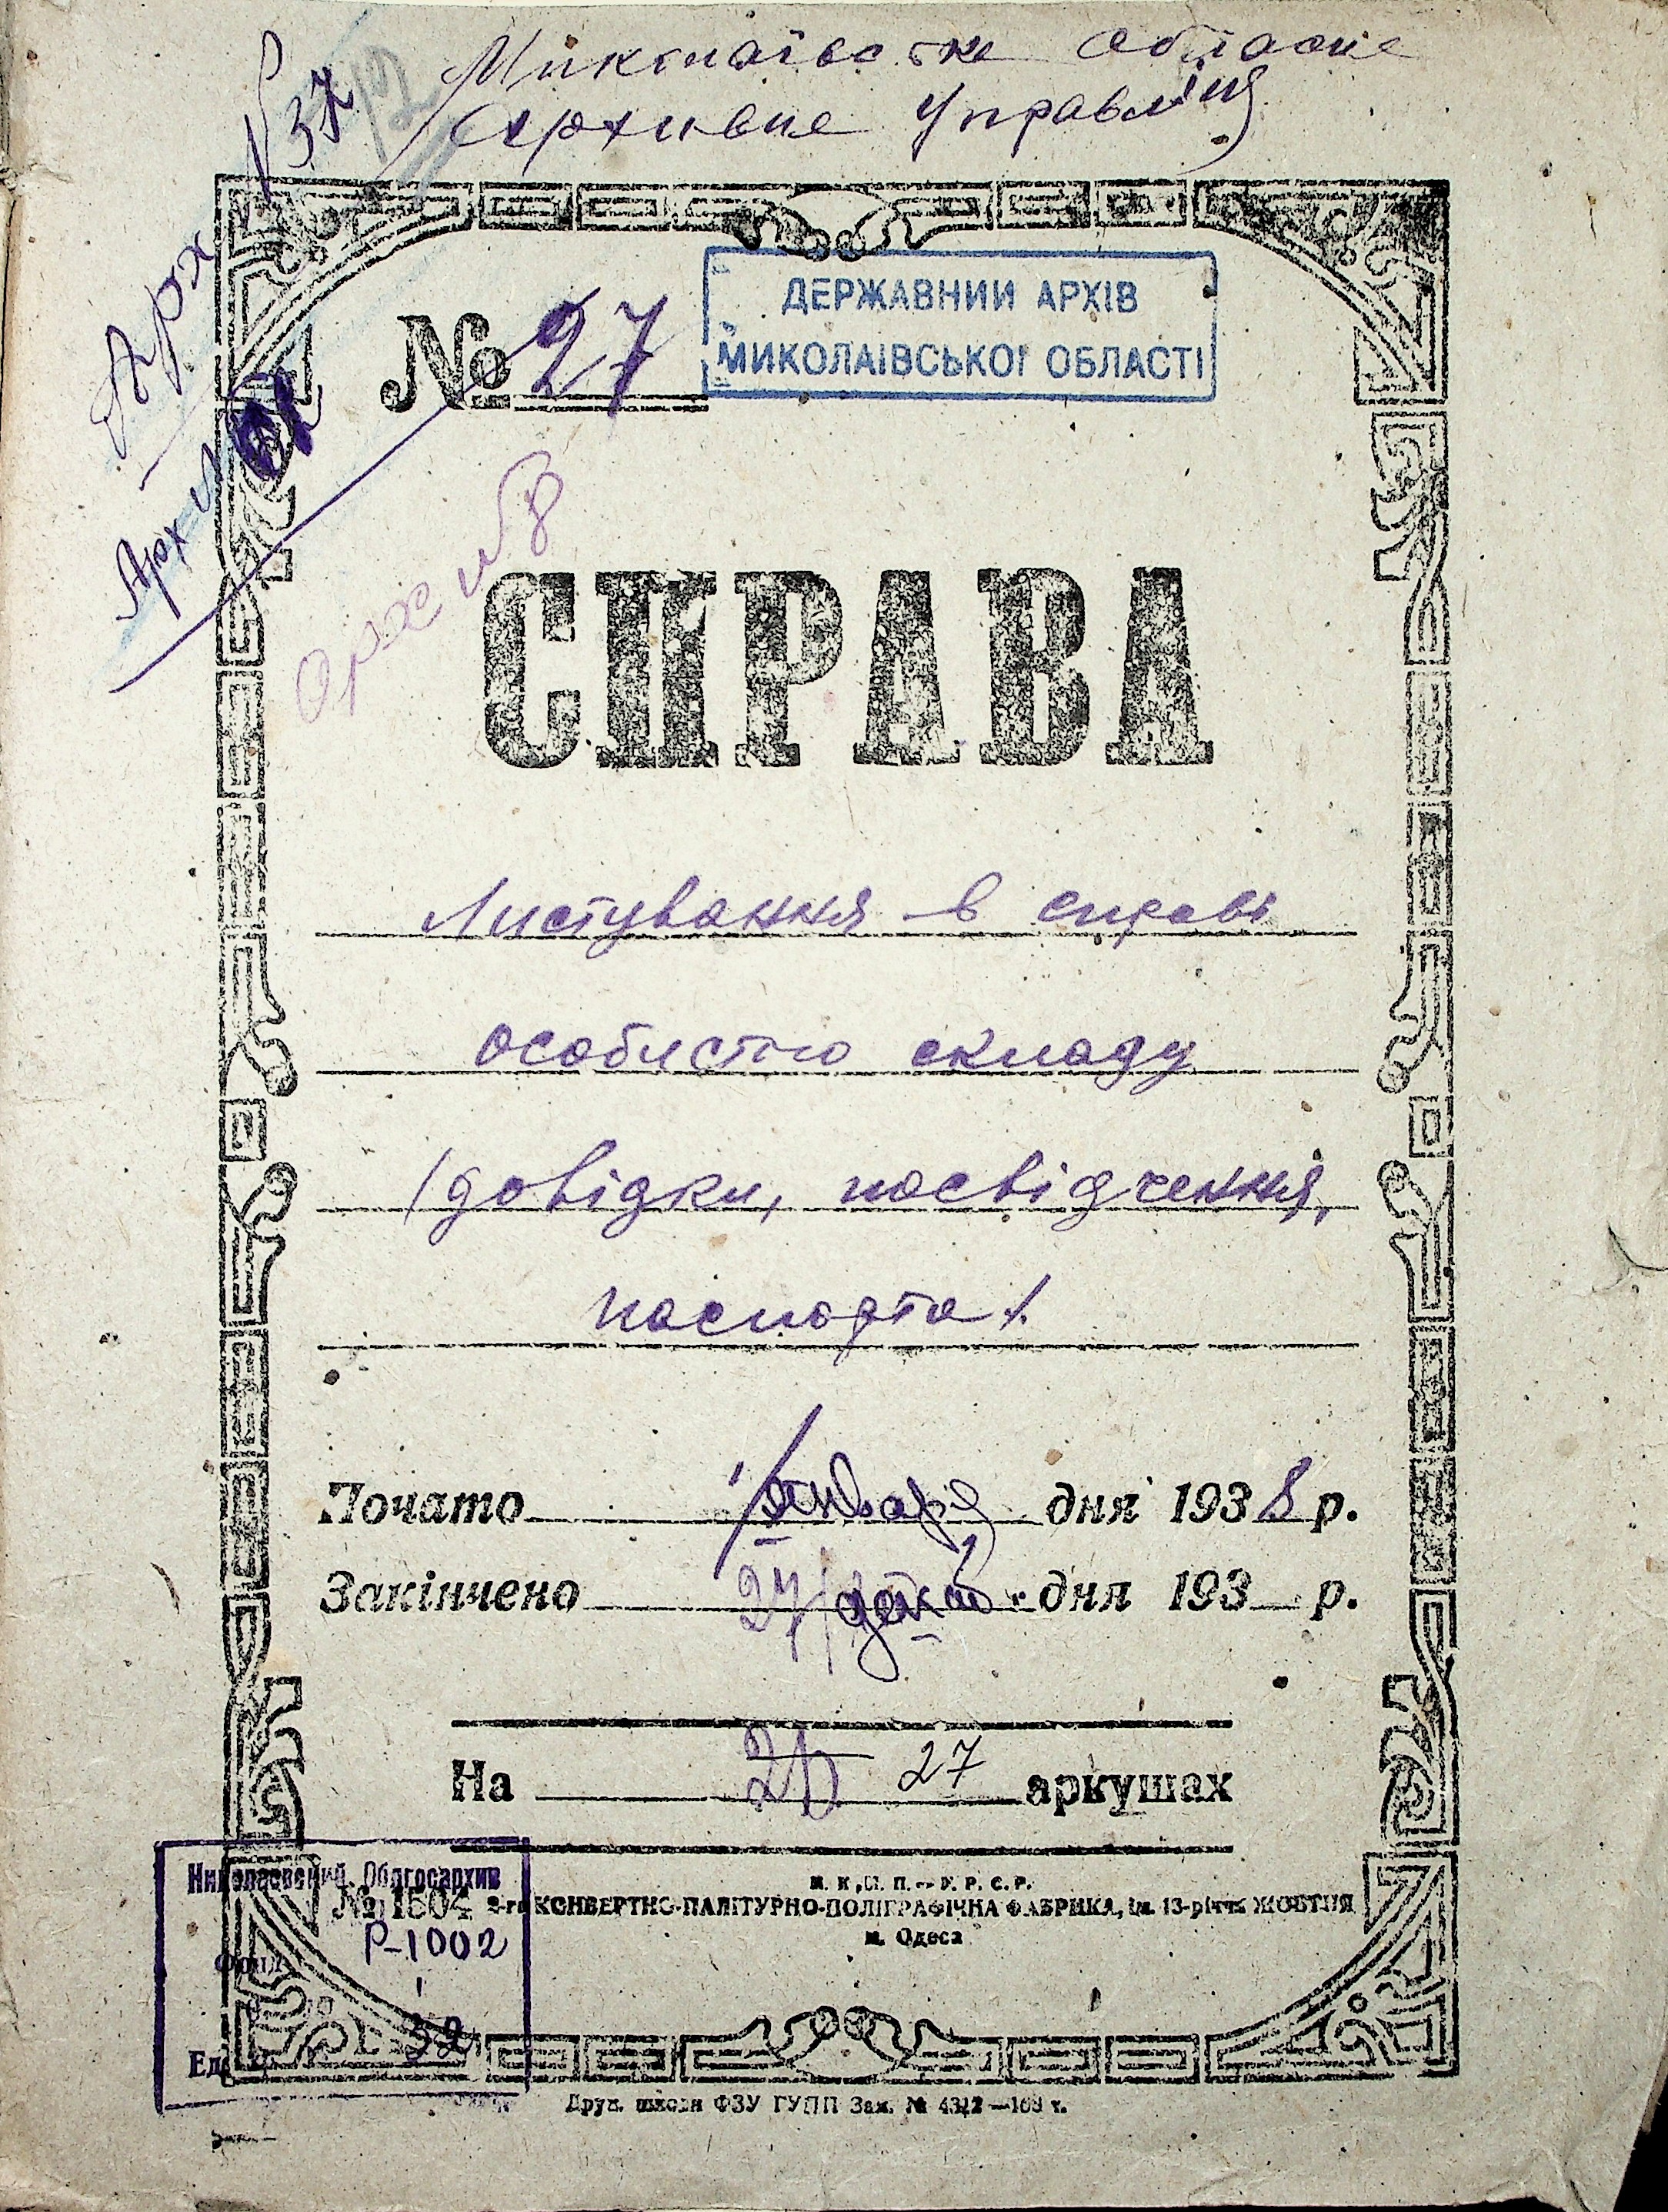 Миколаївське Обласне
Архивне Управління
37
Арх
Арх
№ 27
ДЕРЖАВНИЙ АРХІВ
МИКОЛАЇВСЬКОЇ ОБЛАСТІ
Архив
СПРАВА
Листування в справі
особистого складу
(довідки, посвідчення,
паспорта).
Почато 1 января дня 1938 р.
Закінчено 27 декаб. дня 193 р.
На 27 аркушах
Николаевский Облгосархив
№ 1504
Фонд Р-1002
1
Ед. 32
М. К. М. П. — У. Р. С. Р.
2-га КОНВЕРТНО-ПАЛІТУРНО-ПОЛІГРАФІЧНА ФАБРИКА, ім. 13-річчя ЖОВТНЯ
м. Одеса
Друк. школи ФЗУ ГУПП Зам. № 4312—100 т.